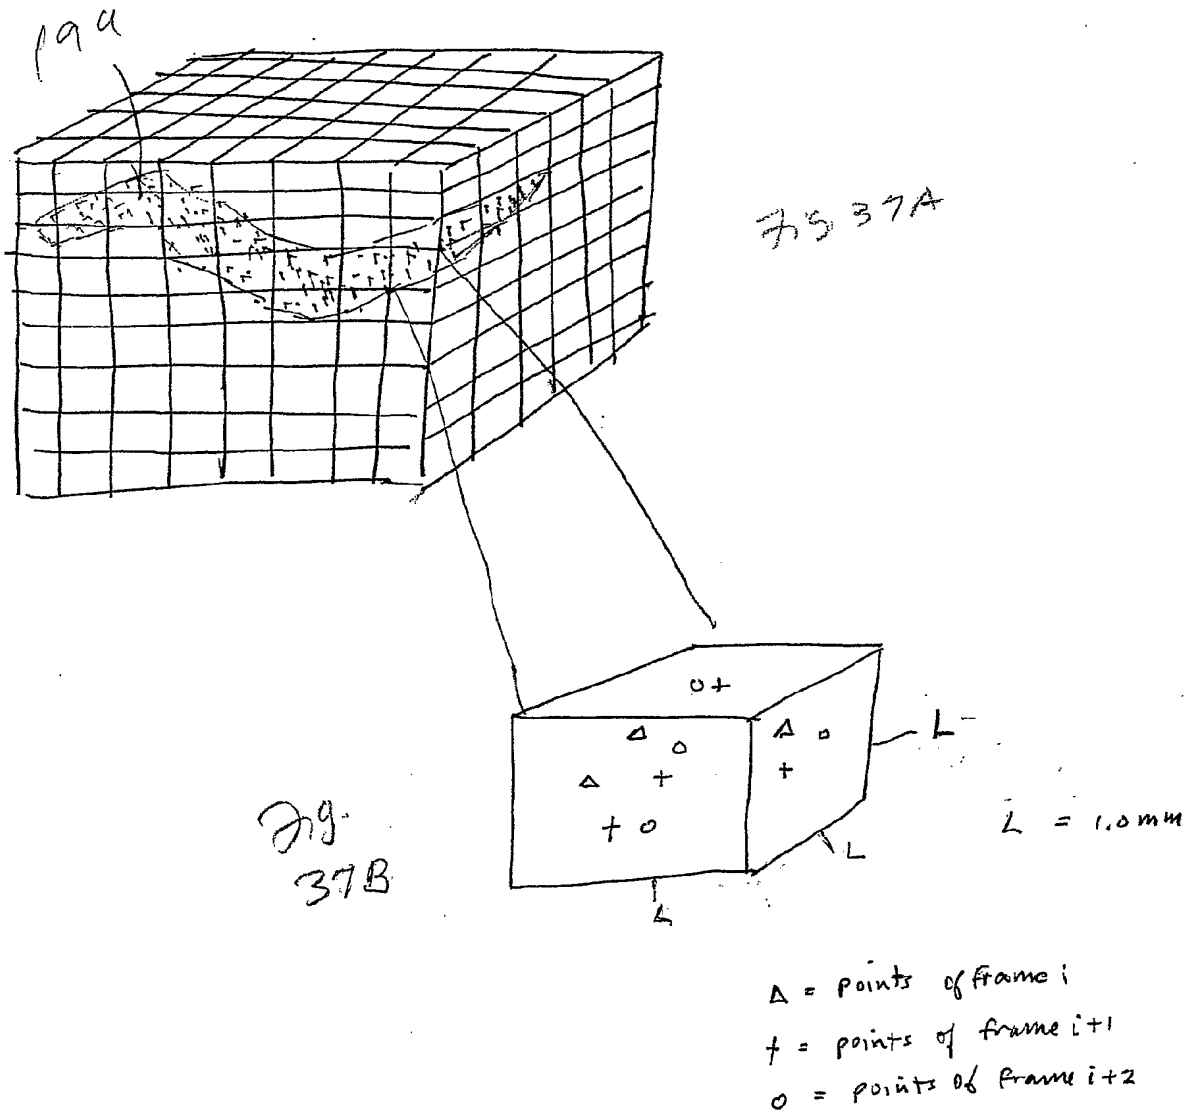 199
Fig 37A
L
L = 1.0 mm
L
L
Fig.
37B
Δ = points of frame i
+ = points of frame i+1
o = points of frame i+2